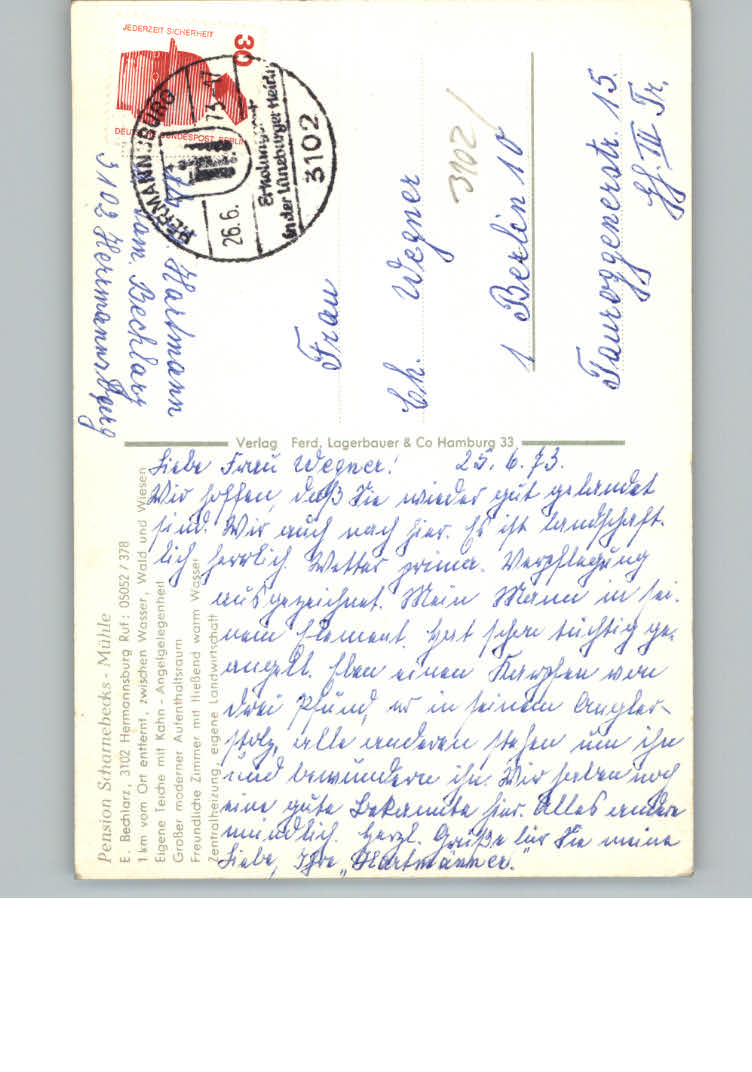 JEDERZEIT SICHERHEIT
30
DEUTSCHE BUNDESPOST BERLIN
HERRMANNSBURG
26.6.73-17
Erholungsort
in der Lüneburger Heide
3102
Hartmann
Pam. Bechlarz
3102 Herrmannsburg
3102/
Frau
Ch. Wegner
1 Berlin 10
Tauroggenerstr. 15.
Gh. III Tr.
Verlag Ferd. Lagerbauer & Co Hamburg 33
Pension Scharnebecks-Mühle
E. Bechlarz, 3102 Hermannsburg Ruf: 05052/378
1 km vom Ort entfernt, zwischen Wasser, Wald und Wiesen
Eigene Teiche mit Kahn - Angelgelegenheit
Großer moderner Aufenthaltsraum
Freundliche Zimmer mit fließend warm Wasser
Zentralheizung, eigene Landwirtschaft
Liebe Frau Wegner! 25.6.73.
Wir hoffen, daß Sie wieder gut gelandet
sind. Wir auch nach hier. Es ist landschaft-
lich herrlich. Wetter prima. Verpflegung
ausgezeichnet. Mein Mann in sei-
nem Element. Hat schon tüchtig ge-
angelt. Eben einen Karpfen von
drei Pfund, er in seinem Angler-
stolz, alle anderen stehen um ihn
und bewundern ihn. Wir haben noch
eine gute Bekannte hier. Alles andere
mündlich. Herzl. Grüße für Sie meine
Liebe, Ihre "Hartmänner."